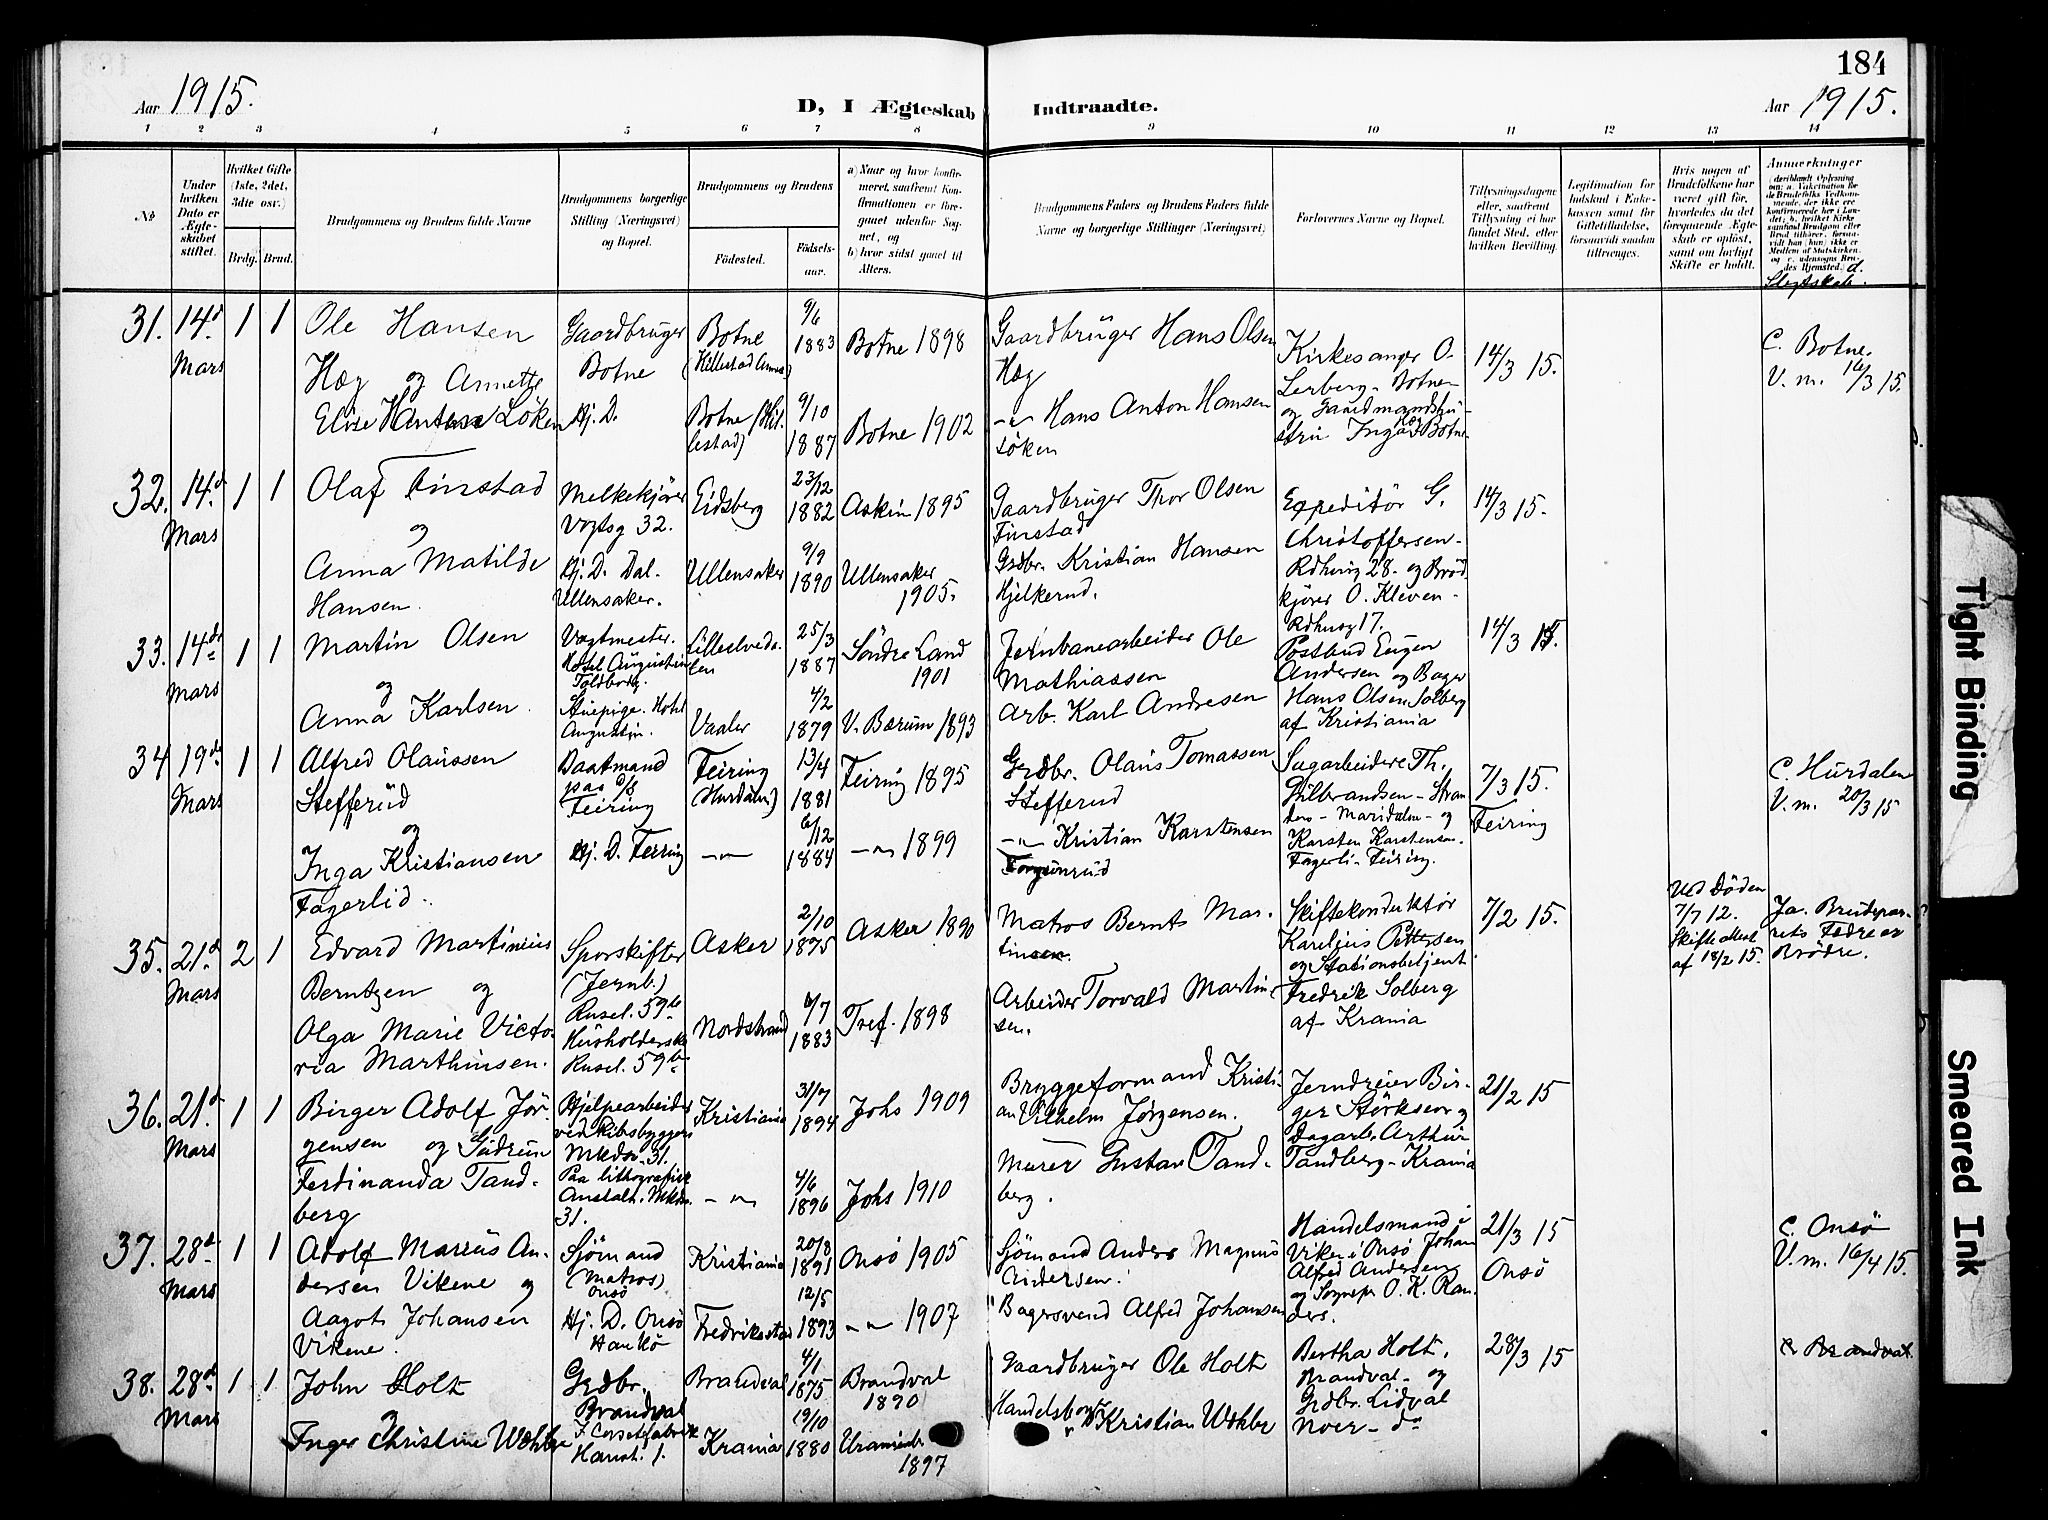 184
Aar 1915.
D, I Ægteskab Indtraadte.
Aar 1915.
1 2 3 4 5 6 7 8 9 10 11 12 13 14
No
Under hvilken Dato er Ægteskabet stiftet.
Hvilket Gifte (1ste, 2det, 3dte osv.)
Brdg. Brud.
Brudgommens og Brudens fulde Navne
Brudgommens borgerlige Stilling (Næringsvei) og Bopæl.
Brudgommens og Brudens
Fødested. Fødselsaar.
a) Naar og hvor konfirmeret, saafremt Konfirmationen er foregaaet udenfor Sognet, og
b) hvor sidst gaaet til Alters.
Brudgommens Faders og Brudens Faders fulde Navne og borgerlige Stillinger (Næringsvei)
Forlovernes Navne og Bopæl.
Tillysningsdagene eller, saafremt Tillysning ei har fundet Sted, efter hvilken Bevilling.
Legitimation for Indskud i Enkekassen samt for Giftetilladelse, forsaavidt saadan tiltrænges.
Hvis nogen af Brudefolkene har været gift før, hvorledes da det foregaaende Ægteskab er opløst, samt om lovligt Skifte er holdt.
Anmerkninger
d. Slegtskab.
31. 14d Mars 1 1
Ole Hansen
Hæg og Annette
Elise Løken
Gaardbruger
Botne
Hj. D.
Botne
9/6 1883
Botne 1898
Botne (Hillestad)
9/10 1887
Botne 1902
Gaardbruger Hans Olsen
Hæg
-"- Hans Anton Hansen
Løken
Kirkesanger O.
Lerberg - Botne
14/3 15.
C. Botne.
V. m. 16/3 15.
32. 14d Mars 1 1
Olaf Finstad
og
Anna Matilde
Hansen.
Melkekjører
Vogtsg 32.
Hj. D. Dal.
Ullensaker.
Eidsberg
23/12 1882
Askim 1895
Ullensaker
9/9 1890
Ullensaker
1905.
Gaardbruger Thor Olsen
Finstad
Grdbr. Kristian Hansen
Hjelkerud.
Expeditør G.
Christoffersen -
Rdhusg 28. og Brød
kjører O. Kleven -
Rdhusg 17.
14/3 15.
33. 14de Mars 1 1
Martin Olsen
og
Anna Karlsen.
Vagtmester.
Hotel Augustin
Toldbodg.
Stuepige. Hotel
Augustin.
25/3 1887
Søndre Land
1901
Vaaler
4/2 1879
V. Bærum 1893
Jernbanearbeider Ole
Mathiassen
Arb. Karl Andresen
Postbud Eugen
Andersen og Bager
Hans Olsen Solberg
af Kristiania
14/3 15
34 19de Mars 1 1
Alfred Olaussen
Stefferud
og
Inga Kristiansen
Fagerlid.
Baatmand
Feiring
Hj. D. Feiring
Feiring
(Hurdalen)
13/4 1881
Feiring 1895
-"-
6/12 1884
-"- 1899
Grdbr. Olaus Tomassen
Stefferud
-"- Kristian Karstensen
Sagarbeider Th.
Gulbrandsen - Maridalen - og
Karsten Karstensen.
Fagerli - Feiring.
7/3 15.
Feiring
C. Hurdalen
V. m. 20/3 15
35. 21d Mars 2 1
Edvard Martinius
Berntzen og
Olga Marie Victo-
ria Marthinsen.
Sporskifter
(Jernb.)
Rusel. 59b
Husholderske
Rusel. 59b
Asker
2/10 1875
Asker 1890
Nordstrand
6/7 1883
Tref. 1898
Matros Bernt Mar-
tinsen.
Arbeider Torvald Martin-
sen.
Skiftekonduktør
Karelius Pettersen
og Stationsbetjent
Fredrik Solberg
af Krania
7/2 15.
Ved Døden
7/7 12.
Skifteattest
af 18/2 15.
Ja. Brudepar-
rets Fædre er
Brødre.
36. 21d Mars 1 1
Birger Adolf Jør-
gensen og Gudrun
Ferdinanda Tand-
berg
Hjelpearbeider
ved skibsbyggeri
31.
Paa lithografisk
Anstalt.
31.
Kristiania
31/7 1894
Johs 1909
-"-
4/6 1896
Johs 1910
Bryggeformand Kristi-
an Vilhelm Jørgensen.
Murer Gustav Tand-
berg.
Jerndreier Bir-
ger Størksen og
Dagarb. Arthur
Tandberg - Krania
21/2 15
37. 28d Mars 1 1
Adolf Marius An-
dersen Vikene og
Aagot Johansen
Vikene.
Sjømand
(Matros)
Onsø
Hj. D. Onsø
Hankø
Kristiania
20/8 1891
Onsø 1905
Fredrikstad
12/5 1893
-"- 1907
Sjømand Anders Magnus
Andersen.
Bagersvend Alfred Johansen
Handelsmand i
Viker i Onsø Johan
Alfred Andersen
og Sognepr O. K. Ran-
ders.
21/3 15
Onsø
C. Onsø
V. m. 16/4 15.
38. 28d Mars 1 1
John Holt
og
Inger Christine
Grdbr.
Brandval
Brandval
4/1 1875
Brandval
1890
Krania
19/10 1880
1897
Gaardbruger Ole Holt
Kristian
Bertha Holt.
Brandval - og
Grdbr. Lidval
Noer - do
28/3 15
C. Brandval
Tight Binding
Smeared Ink